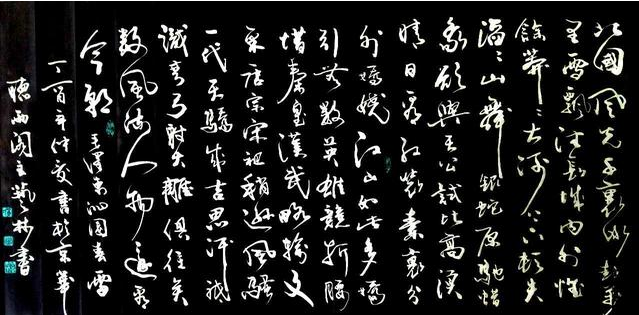 北國風光千里冰封萬
里雪飄望長城內外惟
餘莽々大河上下頓失
滔々山舞銀蛇原馳蠟
象欲與天公試比高須
晴日看紅裝素裹分
外嬈江山如此多嬌
引無數英雄競折腰
惜秦皇漢武略輸文
采唐宗宋祖稍遜風騷
一代天驕成吉思汗祇
識彎弓射大雕俱往矣
數風流人物還看
今朝 毛澤東沁園春雪
丁酉年仲夏書於京華
聽雨閣主書